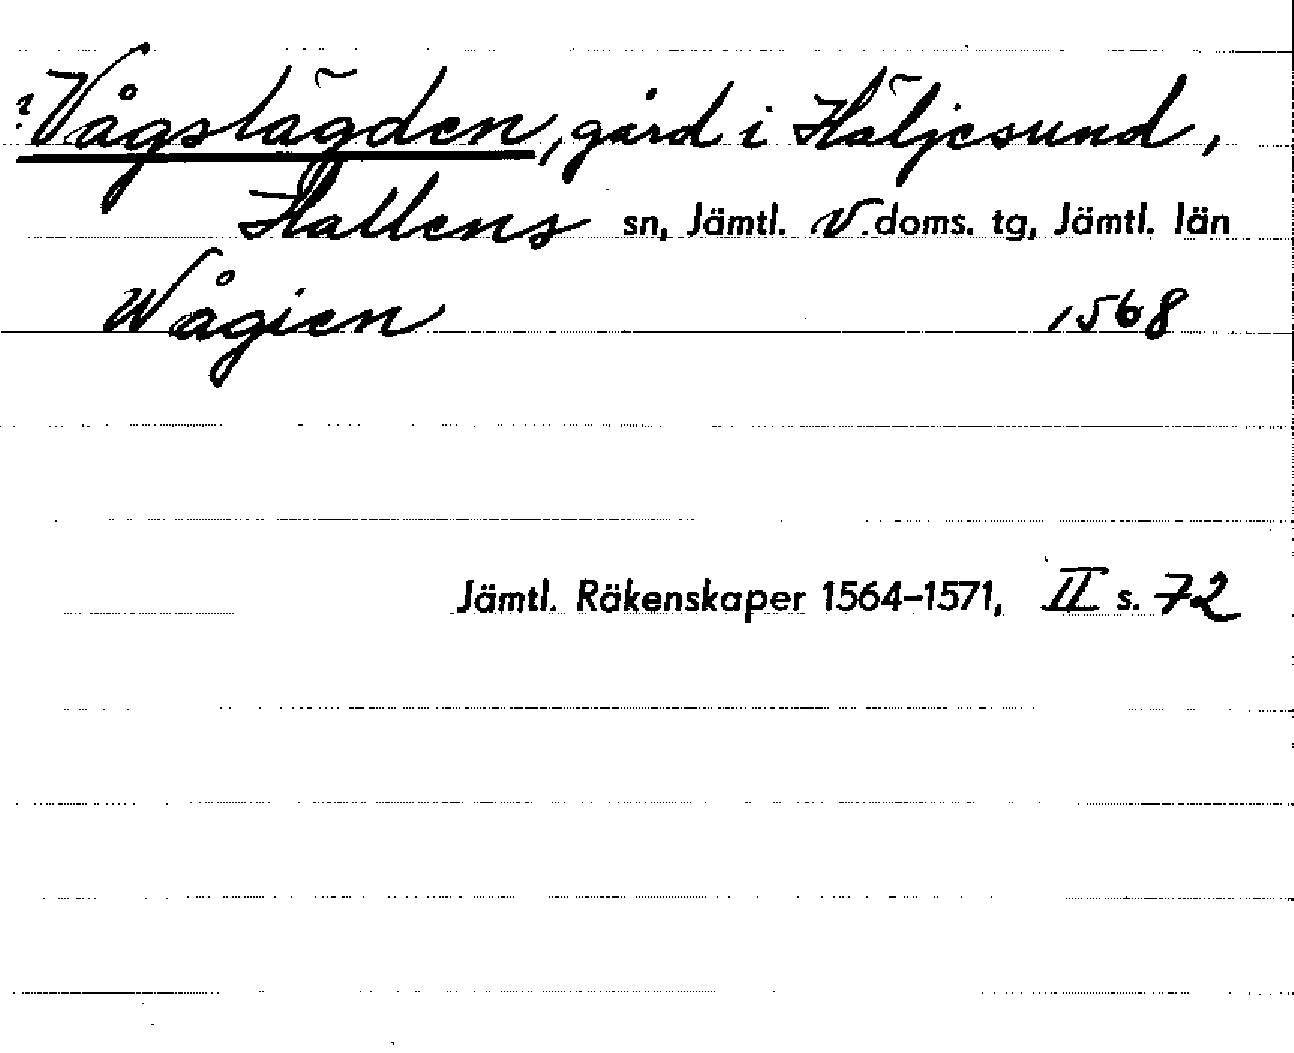 ? Vågslägden, gård i Häljesund,
Hallens sn, Jämtl. V. doms. tg, Jämtl. län
Wågien 1568
Jämtl. Räkenskaper 1564-1571, II s. 72